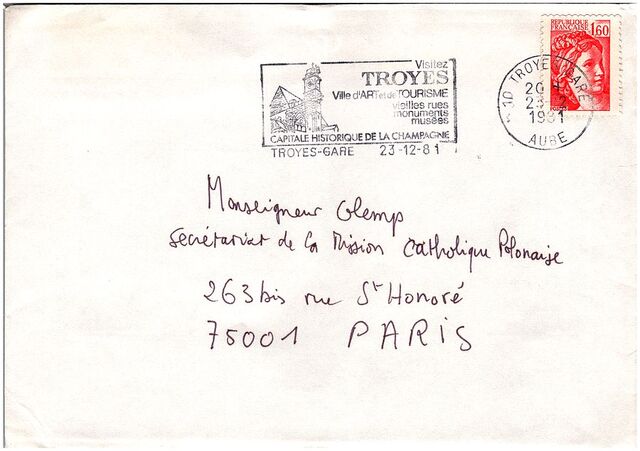 REPUBLIQUE
FRANÇAISE 1,60
Visitez
TROYES
Ville d'ART et de TOURISME
vieilles rues
monuments
musées
CAPITALE HISTORIQUE DE LA CHAMPAGNE
TROYES-GARE 23-12-81
10 TROYES GARE
23-12
1981
AUBE
Monseigneur Glemp
Secrétariat de la Mission Catholique Polonaise
263 bis rue St Honoré
75001 PARIS